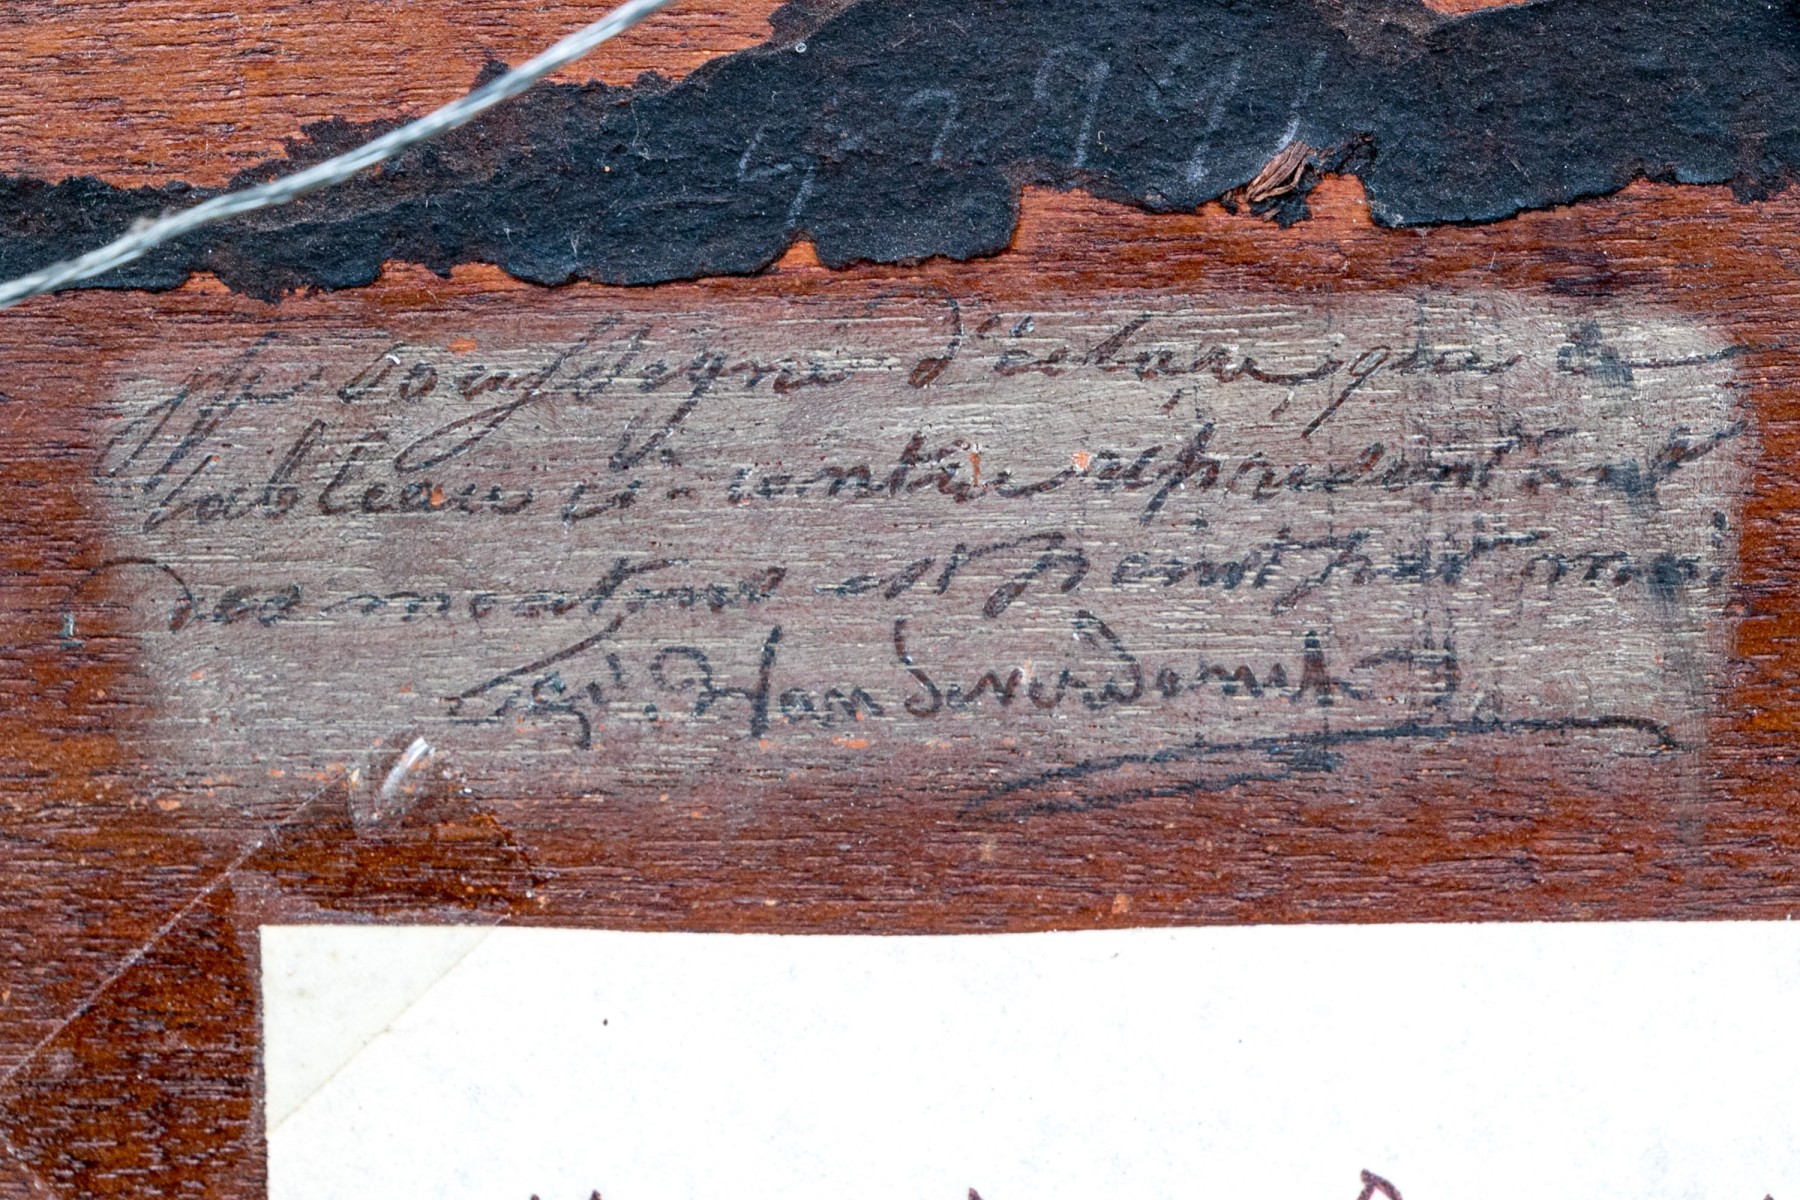 Je soussigné d'éclare que le
tableau ci-contre représentant
des moutons est peint par moi
Van Severdonck